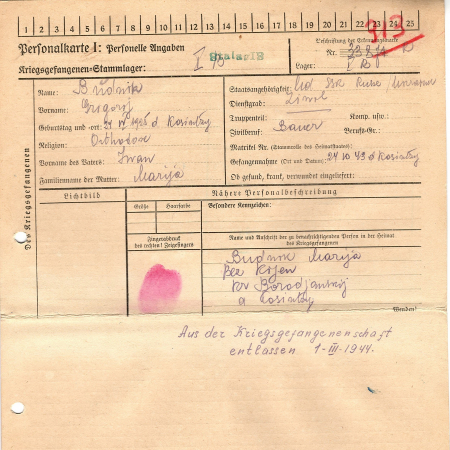 1 2 3 4 5 6 7 8 9 10 11 12 13 14 15 16 17 18 19 20 21 22 23 24 25
313
Personalkarte I: Personelle Angaben
Kriegsgefangenen-Stammlager: Stalag I B
Beschriftung der Erkennungsmarke
Nr.
Lager: I B
Des Kriegsgefangenen
Name: Budnik
Vorname: Grigorij
Geburtstag und -ort:
Religion: Orthodox
Vorname des Vaters: Iwan
Familienname der Mutter: Marija
Staatsangehörigkeit:
Dienstgrad: Zivil
Truppenteil: Komp. usw.:
Zivilberuf: Bauer Berufs-Gr.:
Matrikel Nr. (Stammrolle des Heimatstaates):
Gefangennahme (Ort und Datum): 24 10 43 d Kosialzy
Ob gesund, krank, verwundet eingeliefert:
Lichtbild
Nähere Personalbeschreibung
Größe
Haarfarbe
Besondere Kennzeichen:
Fingerabdruck
des rechten! Zeigefingers
Name und Anschrift der zu benachrichtigenden Person in der Heimat
des Kriegsgefangenen
Budnik Marija
Bez Kijen
Borodjanskij
d Kosialzy
Wenden!
Aus der Kriegsgefangenenschaft
entlassen 1-III-1944.